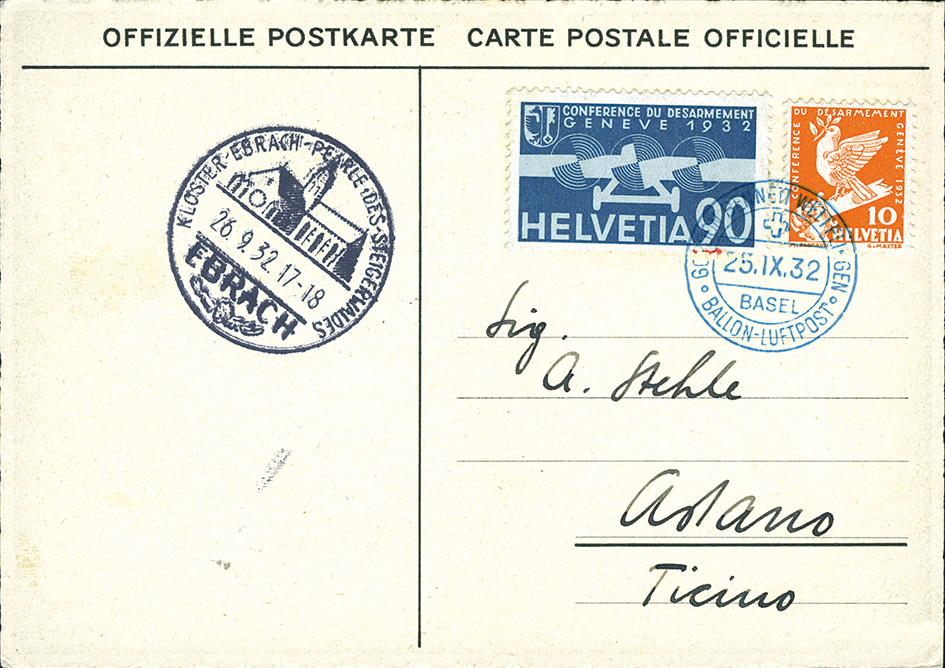 OFFIZIELLE POSTKARTE CARTE POSTALE OFFICIELLE
KLOSTER-EBRACH-PERLE-DES-STEIGERWALDES
26.9.32.17-18
EBRACH
CONFERENCE DU DESARMEMENT
GENEVE 1932
HELVETIA 90
CONFERENCE DU DESARMEMENT GENEVE 1932
10
HELVETIA
25.IX.32
BASEL
BALLON-LUFTPOST
Sig.
A. Stehle
Astano
Ticino